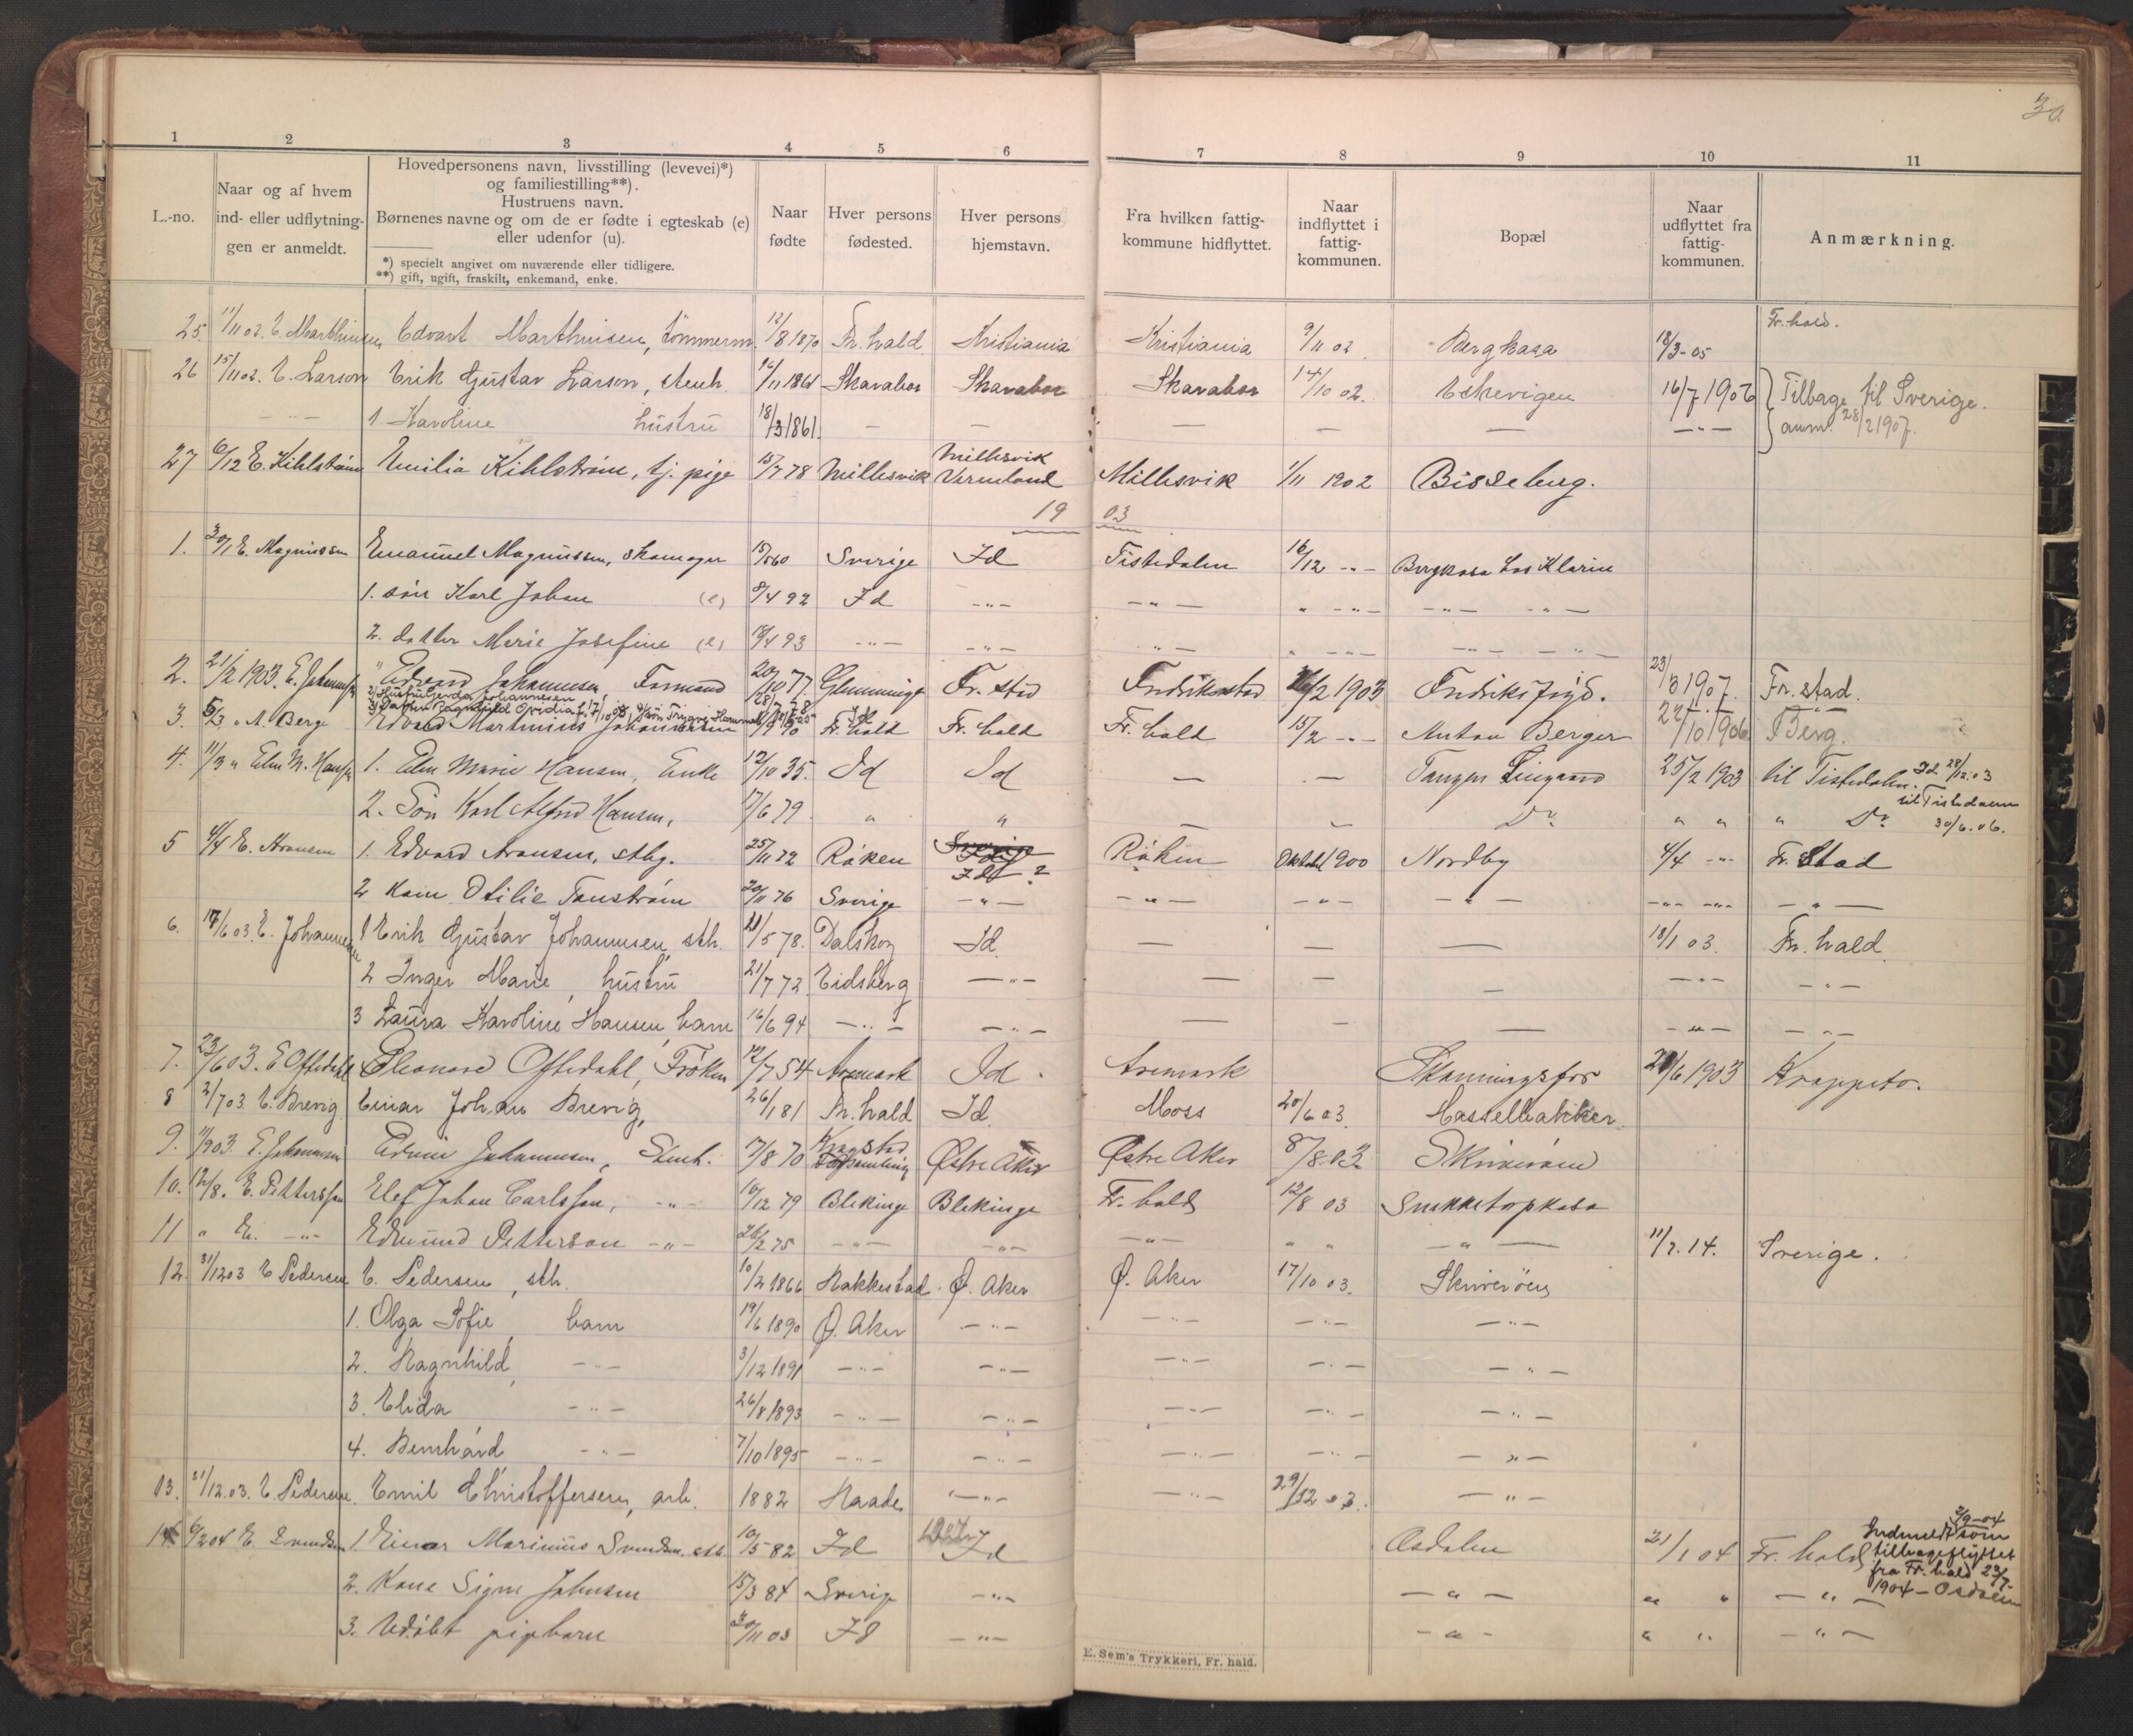 30.
1 2 3 4 5 6 7 8 9 10 11
L.-no.
Naar og af hvem
ind- eller udflytnin-
gen er anmeldt.
Hovedpersonens navn, livsstilling (levevei)*)
og familiestilling**).
Hustruens navn.
Børnenes navne og om de er fødte i egteskab (e)
eller udenfor (u).
*) specielt angivet om nuværende eller tidligere.
**) gift, ugift, fraskilt, enkemand, enke.
Naar
fødte
Hver persons
fødested.
Hver persons
hjemstavn.
Fra hvilken fattig-
kommune hidflyttet.
Naar
indflyttet i
fattig-
kommunen.
Bopæl
Naar
udflyttet fra
fattig-
kommunen.
Anmærkning.
25. 11/11 02. E. Marthinsen Edvart Marthinsen, tømmerm. 12/8 1870 Fr. hald Kristiania Kristiania 9/11 02 Bergkasa 18/3-05 Fr. hald.
26 15/11 02. E. Larson Erik Gustav Larson, stenh. Skarabor Skarabor Skarabor 14/10 02. Eskevigen 16/7 1906 Tilbage til Sverige.
— " — 1. Karoline hustru 18/3 1861. — — — — — — " — anm. 28/2 1907.
27 6/12 E. Kihlstrøm Emilia Kihlstrøm, tj. pige 15/7 78 Millesvik Millesvik Vermland Millesvik 1/11 1902 Bisseberg.
19 03
1. 30/1 E. Magnussen Emanuel Magnussen, skomager Sverige Id Tistedalen 16/12 - " - Bergkasa hos Klarin
1. søn Karl Johan (e) 8/4 92 Id - " - - " - " - " - - " - - " -
2. datter Marie Josefine (e) 93 - " - - " - - " - " - " - - " - - " -
2. 21/2 1903. E. Johannessen " Edvard Johannesen, Formand 20/10 77. Glemminge Fr. stad Fredrikstad 2 1903 Fredriksfryd. 23/3 1907. Fr. stad.
2) Hustru Gerda Johannesen
3) Datter Ragnhild Ovidia
3. 5/3 " A. Berg Edvard Martinius Johannesen 90 Fr. hald Fr. hald Fr. hald 15/2 - " - Anton Berger 22/10 1906 Berg.
4. 11/3 " Elen M. Hansen 1. Elen Marie Hansen, Enke 12/10 35. Id Id — — 25/2 1903 til Tistedalen. Id 28/12.03
2. Søn Karl Alfred Hansen, 17/6 79 " " — — Do " " " Do til Tistedalen 30/6.06.
5 4/4 E. Aronsen 1. Edvard Aronsen, stbg. 25/11 72 Røken Id ? Røken Oktober 1900 Nordby 4/4 - " - Fr. Stad
2 Kone Otilie Tanstrøm 20/11 76 Sverige - " - - " - - " - - " - - " - - " - - " -
6. 17/6 03. E. Johannesen 1 Erik Gustav Johannesen, sth. 11/5 78. Dalskog Id. — — — 18/1 03. Fr. hald.
2 Inger Marie, hustru 21/7 72 Eidsberg - " - — — — - " - - " -
3 Laura Karoline Hansen, barn 16/6 94 - " - - " - — — — - " - - " -
7. 23/6 03. E Oftedahl Eleonore Oftedahl, Frøken 12/7 54 Aremark Id. Aremark Skanningsfos 6 1903 Krappeto.
8 2/7 03. E. Brevig Einar Johan Brevig, 26/1 81 Fr. hald Id. Moss 20/6 03. Hasselbakken
9. 1/9 03. E. Johannesen Edvin Johannesen, Stenh. 17/8 70 Kragstad Østre Aker Østre Aker 8/8 03 Skriverøen
10. 12/8. E. Pettersson Elef Johan Carlsson, - " - 10/12 79 Blekinge Blekinge Fr. hald 12/8 03 Snekketorpkasa
11 " E. - " - Edmund Petterson - " - 26/2 75 - " - - " - - " - " " - " - 11/7. 14. Sverige.
12. 31/12 03 E Pedersen E. Pedersen, sth. 10/2 1866 Rakkestad Ø. Aker Ø. Aker 17/10 03. Skriverøen
1. Olga Sofie, barn 19/6 1890 Ø. Aker - " - - " - - " - - " -
2. Ragnhild, - " - 3/12 1891 - " - - " - - " - - " - - " -
3. Elida - " - 26/8 1893 - " - - " - - " - - " - - " -
4. Bernhard - " - 7/10 1895 - " - - " - - " - - " - - " -
13. 31/12.03. E. Pedersen. Emil Christoffersen, arb. 1882 Raade - " - - " - 29/12 03. - " -
14 6/2 04 E. Svendsen 1 Einar Marinius Svendsen, stbh. 10/5 82 Id Id Osdalen 21/1 04 Fr. hald 2/9-04 Indmeldt som
tilbageflyttet
fra Fr. hald 23/7-
2. Kone Signe Johnsen 15/3 84 Sverig - " - - " - " " - " - 1904 - Osdalen
3. Udøbt pigebarn 30/11 03 Id - " - - " - " " - " -
E. Sem's Trykkeri, Fr. hald.